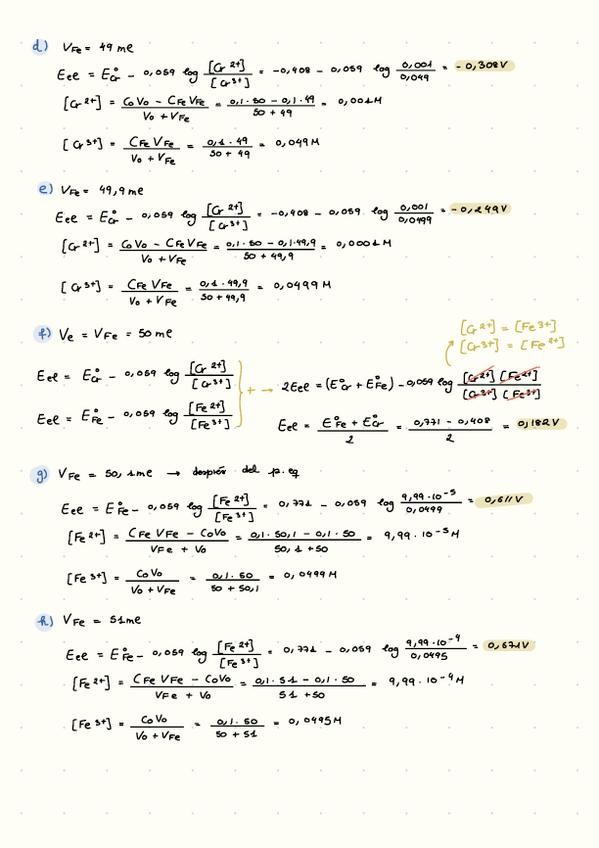 d) V_Fe = 49 mL
Eel = E°Cr - 0,059 log [Cr²⁺]/[Cr³⁺] = -0,408 - 0,059 log 0,001/0,049 = -0,308V
[Cr²⁺] = (CoVo - CFeVFe)/(Vo + VFe) = (0,1·50 - 0,1·49)/(50 + 49) = 0,001M
[Cr³⁺] = (CFeVFe)/(Vo + VFe) = (0,1·49)/(50 + 49) = 0,049M
e) V_Fe = 49,9 mL
Eel = E°Cr - 0,059 log [Cr²⁺]/[Cr³⁺] = -0,408 - 0,059 log 0,001/0,0499 = -0,249V
[Cr²⁺] = (CoVo - CFeVFe)/(Vo + VFe) = (0,1·50 - 0,1·49,9)/(50 + 49,9) = 0,0001M
[Cr³⁺] = (CFeVFe)/(Vo + VFe) = (0,1·49,9)/(50 + 49,9) = 0,0499M
f) Ve = VFe = 50 mL
[Cr²⁺] = [Fe³⁺]
[Cr³⁺] = [Fe²⁺]
Eel = E°Cr - 0,059 log [Cr²⁺]/[Cr³⁺]
+ → 2Eel = (E°Cr + E°Fe) - 0,059 log [Cr²⁺][Fe²⁺]/[Cr³⁺][Fe³⁺]
Eel = E°Fe - 0,059 log [Fe²⁺]/[Fe³⁺]
Eel = (E°Fe + E°Cr)/2 = (0,771 - 0,408)/2 = 0,182V
g) VFe = 50,1mL → después del p.eq
Eel = E°Fe - 0,059 log [Fe²⁺]/[Fe³⁺] = 0,771 - 0,059 log 9,99·10⁻⁵/0,0499 = 0,611V
[Fe²⁺] = (CFeVFe - CoVo)/(VFe + Vo) = (0,1·50,1 - 0,1·50)/(50,1 + 50) = 9,99·10⁻⁵M
[Fe³⁺] = CoVo/(Vo + VFe) = (0,1·50)/(50 + 50,1) = 0,0499M
h) VFe = 51mL
Eel = E°Fe - 0,059 log [Fe²⁺]/[Fe³⁺] = 0,771 - 0,059 log 9,99·10⁻⁴/0,0495 = 0,671V
[Fe²⁺] = (CFeVFe - CoVo)/(VFe + Vo) = (0,1·51 - 0,1·50)/(51 + 50) = 9,99·10⁻⁴M
[Fe³⁺] = CoVo/(Vo + VFe) = (0,1·50)/(50 + 51) = 0,0495M